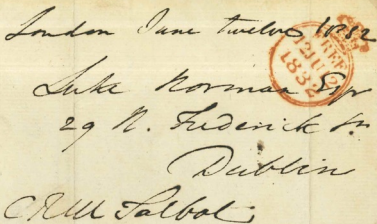 London June twelve 1832
FREE
12 JU 12
1832
Luke Norman Esqr
29 N. Frederick St.
Dublin
CRM Talbot